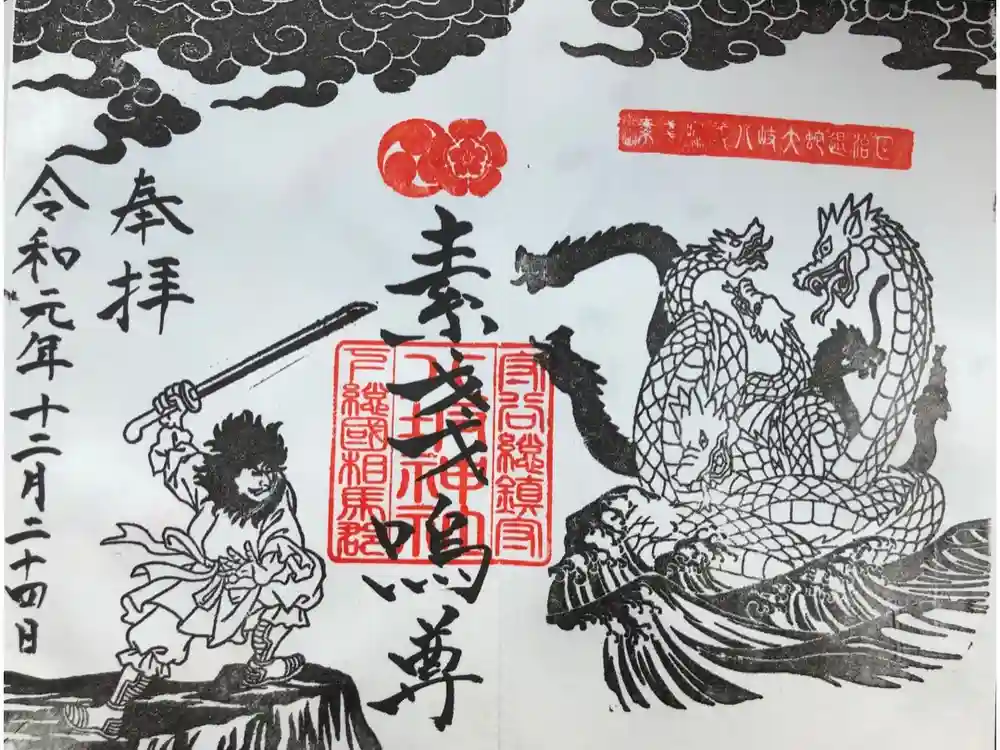 八岐大蛇退治
素戔嗚尊
守谷総鎮守
八坂神社
下総國相馬郡
奉拝
令和元年十二月二十四日